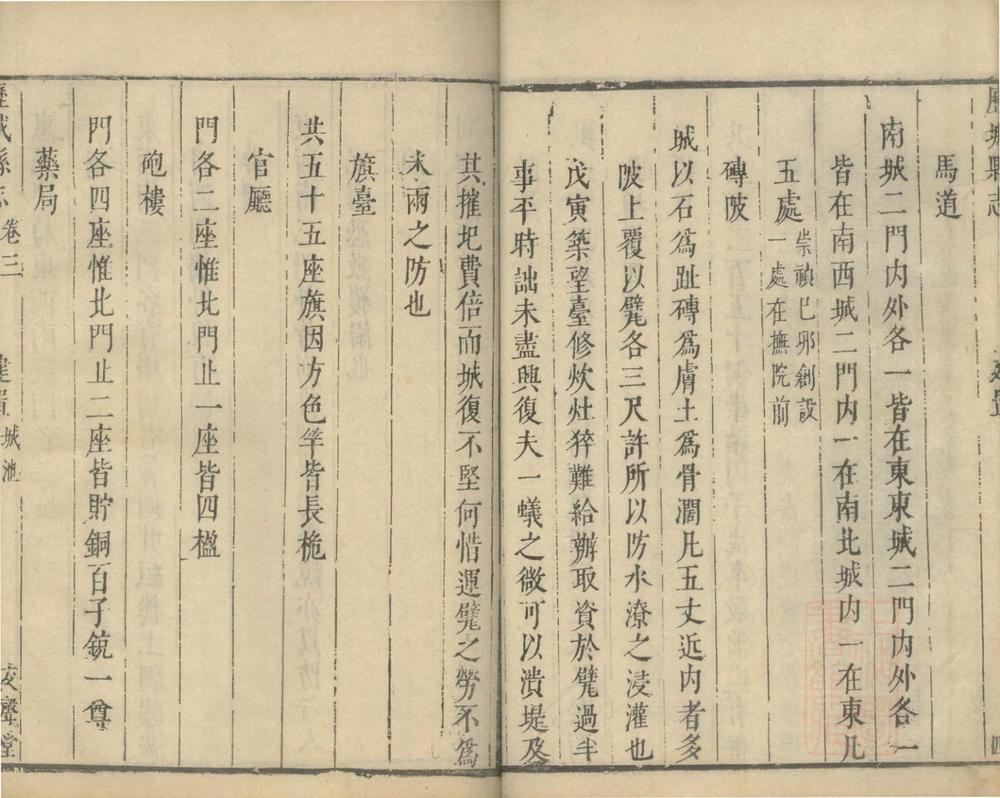 馬道
南城二門内外各一皆在東東城二門内外各一
皆在南西城二門内一在南北城内一在東凡
五處崇禎己卯創設
一處在撫院前
磚陂
城以石爲趾磚爲膚土爲骨濶凡五丈近内者多
陂上覆以甓各三尺許所以防水潦之浸灌也
戊寅築望臺修炊灶猝難給辦取資於甓過半
事平時詘未盡興復夫一蟻之微可以潰堤及
其摧圯費倍而城復不堅何惜運甓之勞不爲
未雨之防也
旗臺
共五十五座旗因方色竿皆長桅
官廳
門各二座惟北門止一座皆四楹
砲樓
門各四座惟北門止二座皆貯銅百子銃一尊
藥局
歷城縣志 卷三 建置 城池 友聲堂